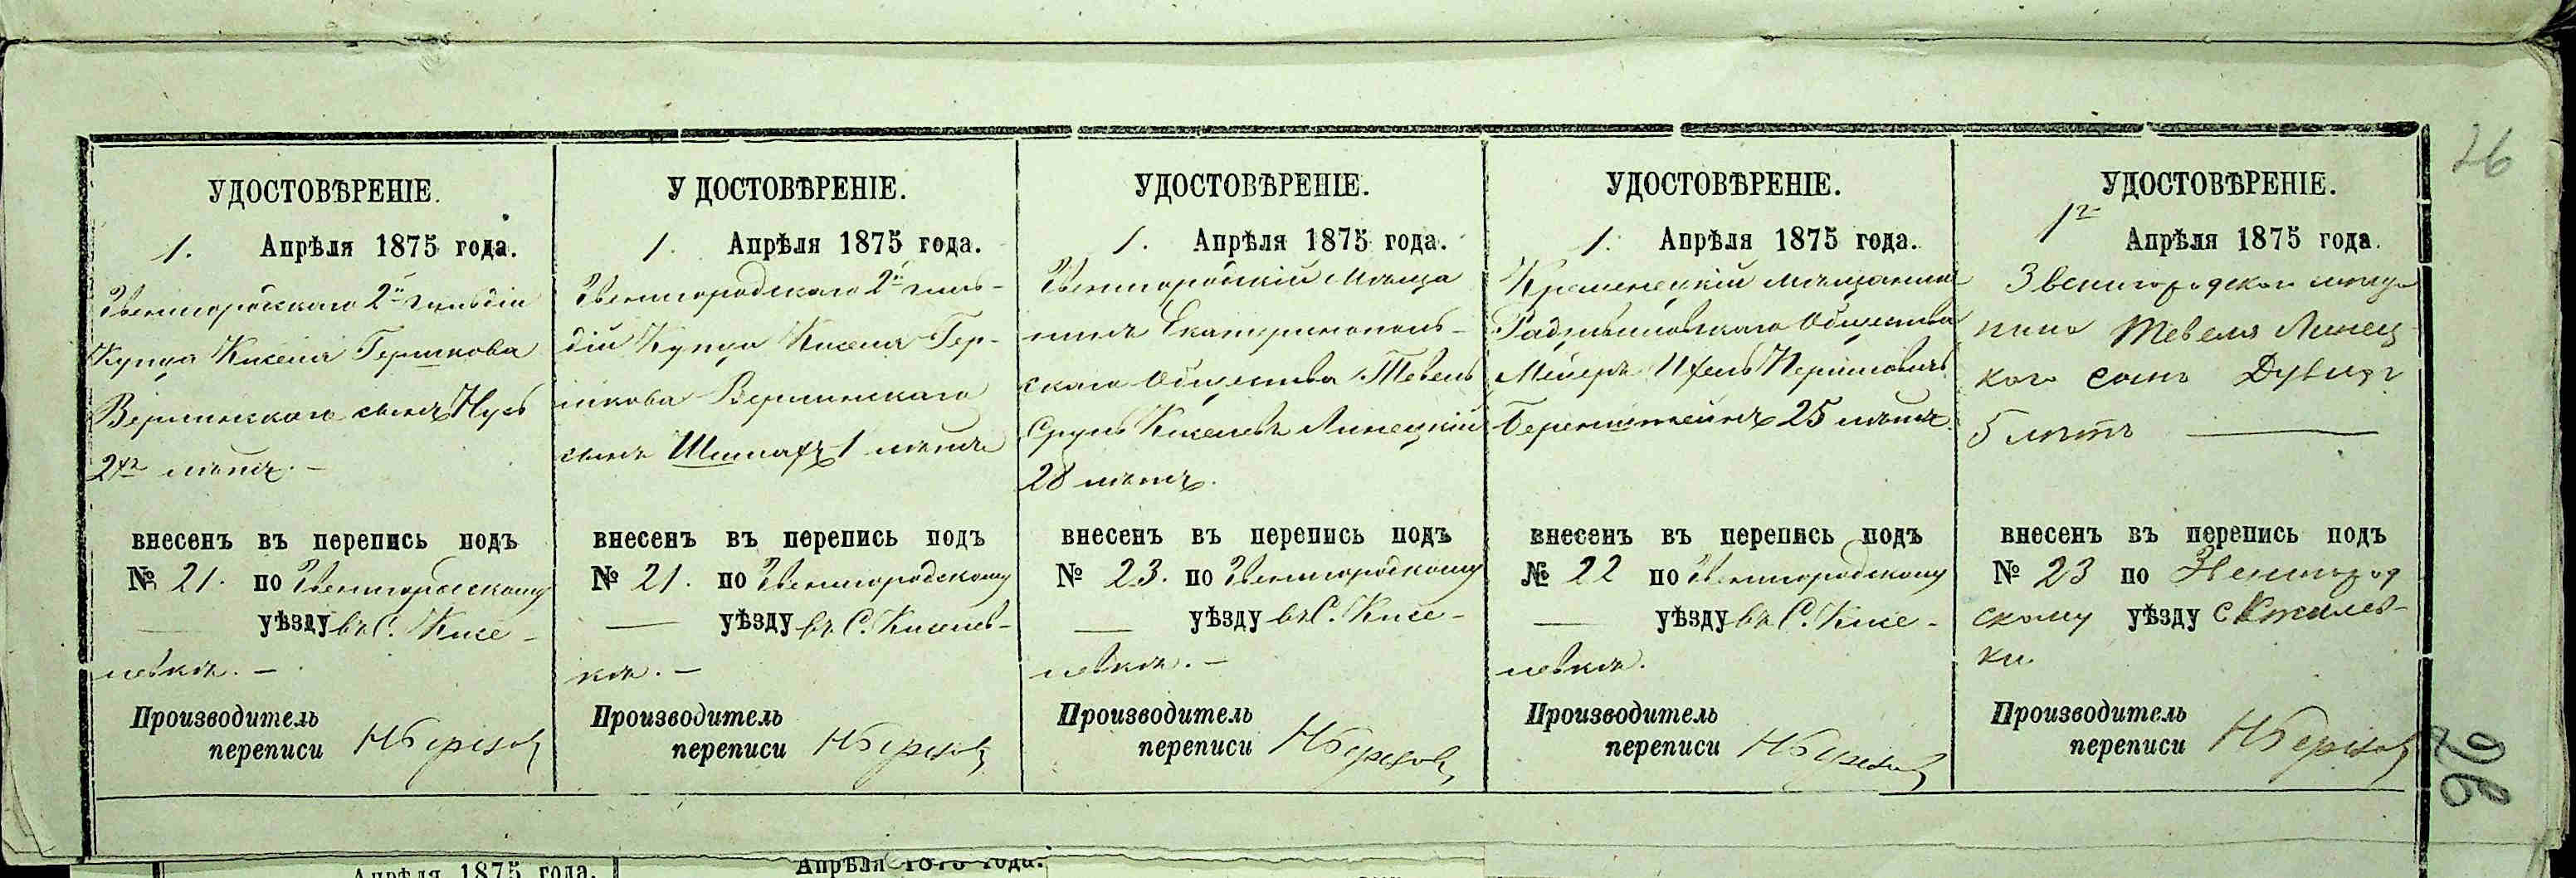 26
УДОСТОВѢРЕНІЕ.
1. Апрѣля 1875 года.
Звенигородскаго 2й гильдіи
Купца Киселя Гершкова
Вершинскаго сынъ Нусь
2хъ лѣтъ. —
внесенъ въ перепись подъ
№ 21. по Звенигородскому
— уѣзду въ С. Кисе-
левкѣ. —
Производитель
переписи НБерезов
У ДОСТОВѢРЕНІЕ.
1. Апрѣля 1875 года.
Звенигородскаго 2й гиль-
діи Купца Киселя Гер-
шкова Вершинскаго
сынъ 1 лѣтъ
внесенъ въ перепись подъ
№ 21. по Звенигородскому
— уѣзду въ С. Кисилев-
кѣ. —
Производитель
переписи НБерезов
УДОСТОВѢРЕНІЕ.
1. Апрѣля 1875 года.
Звенигородскій Мѣща
нинъ Екатеринополь-
скаго Общества Тевель
Сруль Киселевъ Линецкій
28 лѣтъ.
внесенъ въ перепись подъ
№ 23. по Звенигородскому
— уѣзду въ С. Кисе-
левкѣ. —
Производитель
переписи НБерезов
УДОСТОВѢРЕНІЕ.
1. Апрѣля 1875 года.
Кременецкій мѣщанинъ
Радзивиловскаго Общества
Мейеръ
Беренштейнъ 25 лѣтъ.
внесенъ въ перепись подъ
№ 22 по Звенигородскому
— уѣзду въ С. Кисе-
левкѣ.
Производитель
переписи НБерезов
УДОСТОВѢРЕНІЕ.
1го Апрѣля 1875 года.
Звенигородскаго мѣща
нина Тевеля Линец
кого сынъ
5 лѣтъ —
внесенъ въ перепись подъ
№ 23 по Звенигород
скому уѣзду с Кисилев-
ки.
Производитель
переписи НБерезов
26
Апрѣля 1875 года.
Апрѣля 1875 года.